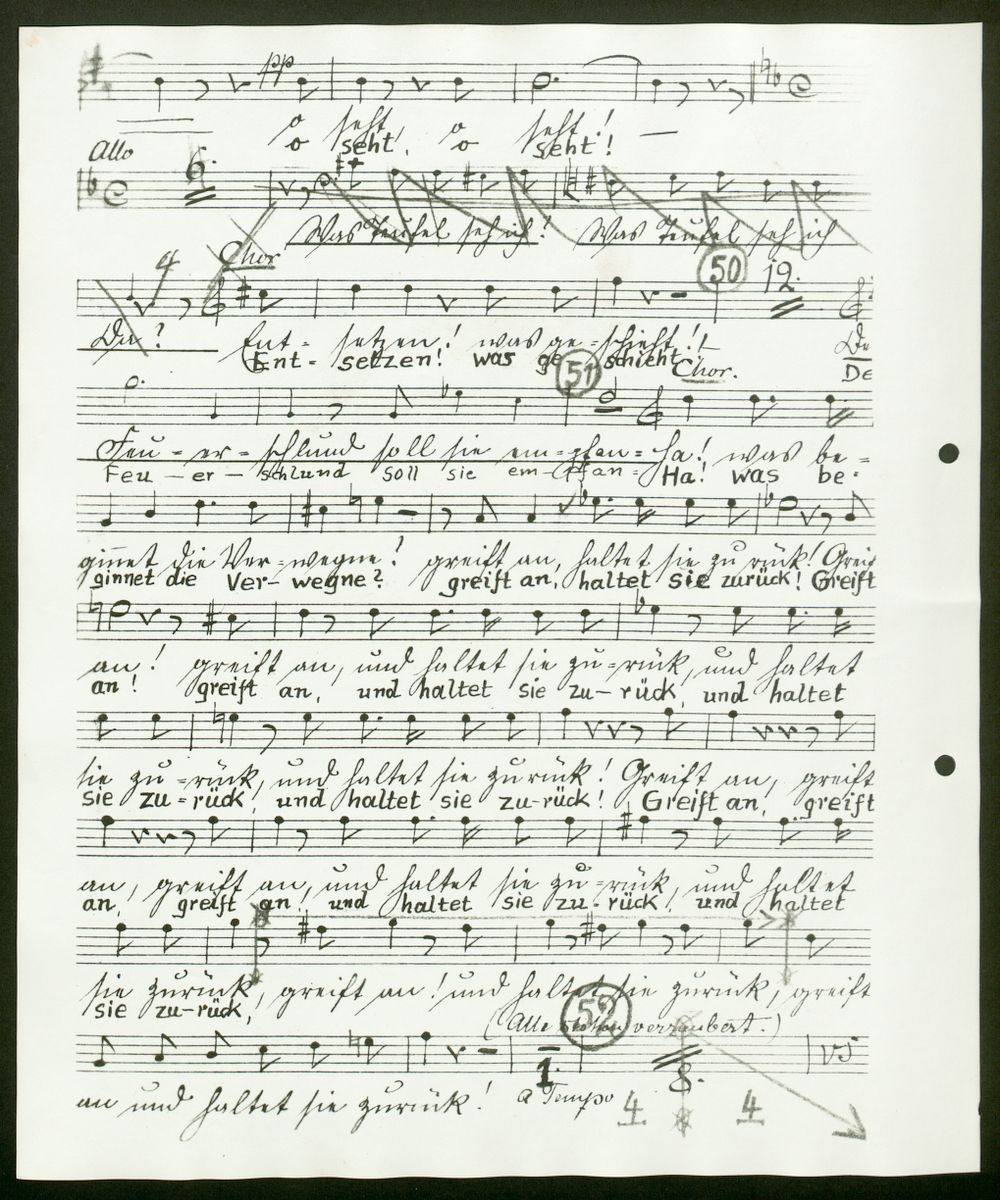 pp
o seht, o seht! —
o seht, o seht!
Allo
6.
Was Teufel seh ich! Was Teufel seh ich
4 Chor 50 12.
Da? Ent- setzen! was ge-schieht!! De
Ent- setzen! was ge schieht De
51 Chor.
Feu-er-schlund soll sie em-pfan- Ha! was be-
Feu-er-schlund soll sie em-pfan- Ha! was be-
ginnet die Ver-wegne? greift an, haltet sie zu rück! Greift
ginnet die Ver-wegne? greift an, haltet sie zurück! Greift
an! greift an, und haltet sie zu-rück, und haltet
an! greift an, und haltet sie zu-rück, und haltet
sie zu-rück, und haltet sie zurück! Greift an, greift
sie zu-rück, und haltet sie zu-rück! Greift an, greift
an, greift an, und haltet sie zu-rück, und haltet
an, greift an, und haltet sie zu-rück, und haltet
sie zurück, greift an! und haltet sie zurück, greift
sie zu-rück,
52
(Alle stehen verzaubert.)
1. 8. VS
an und haltet sie zurück! a Tempo 4 4